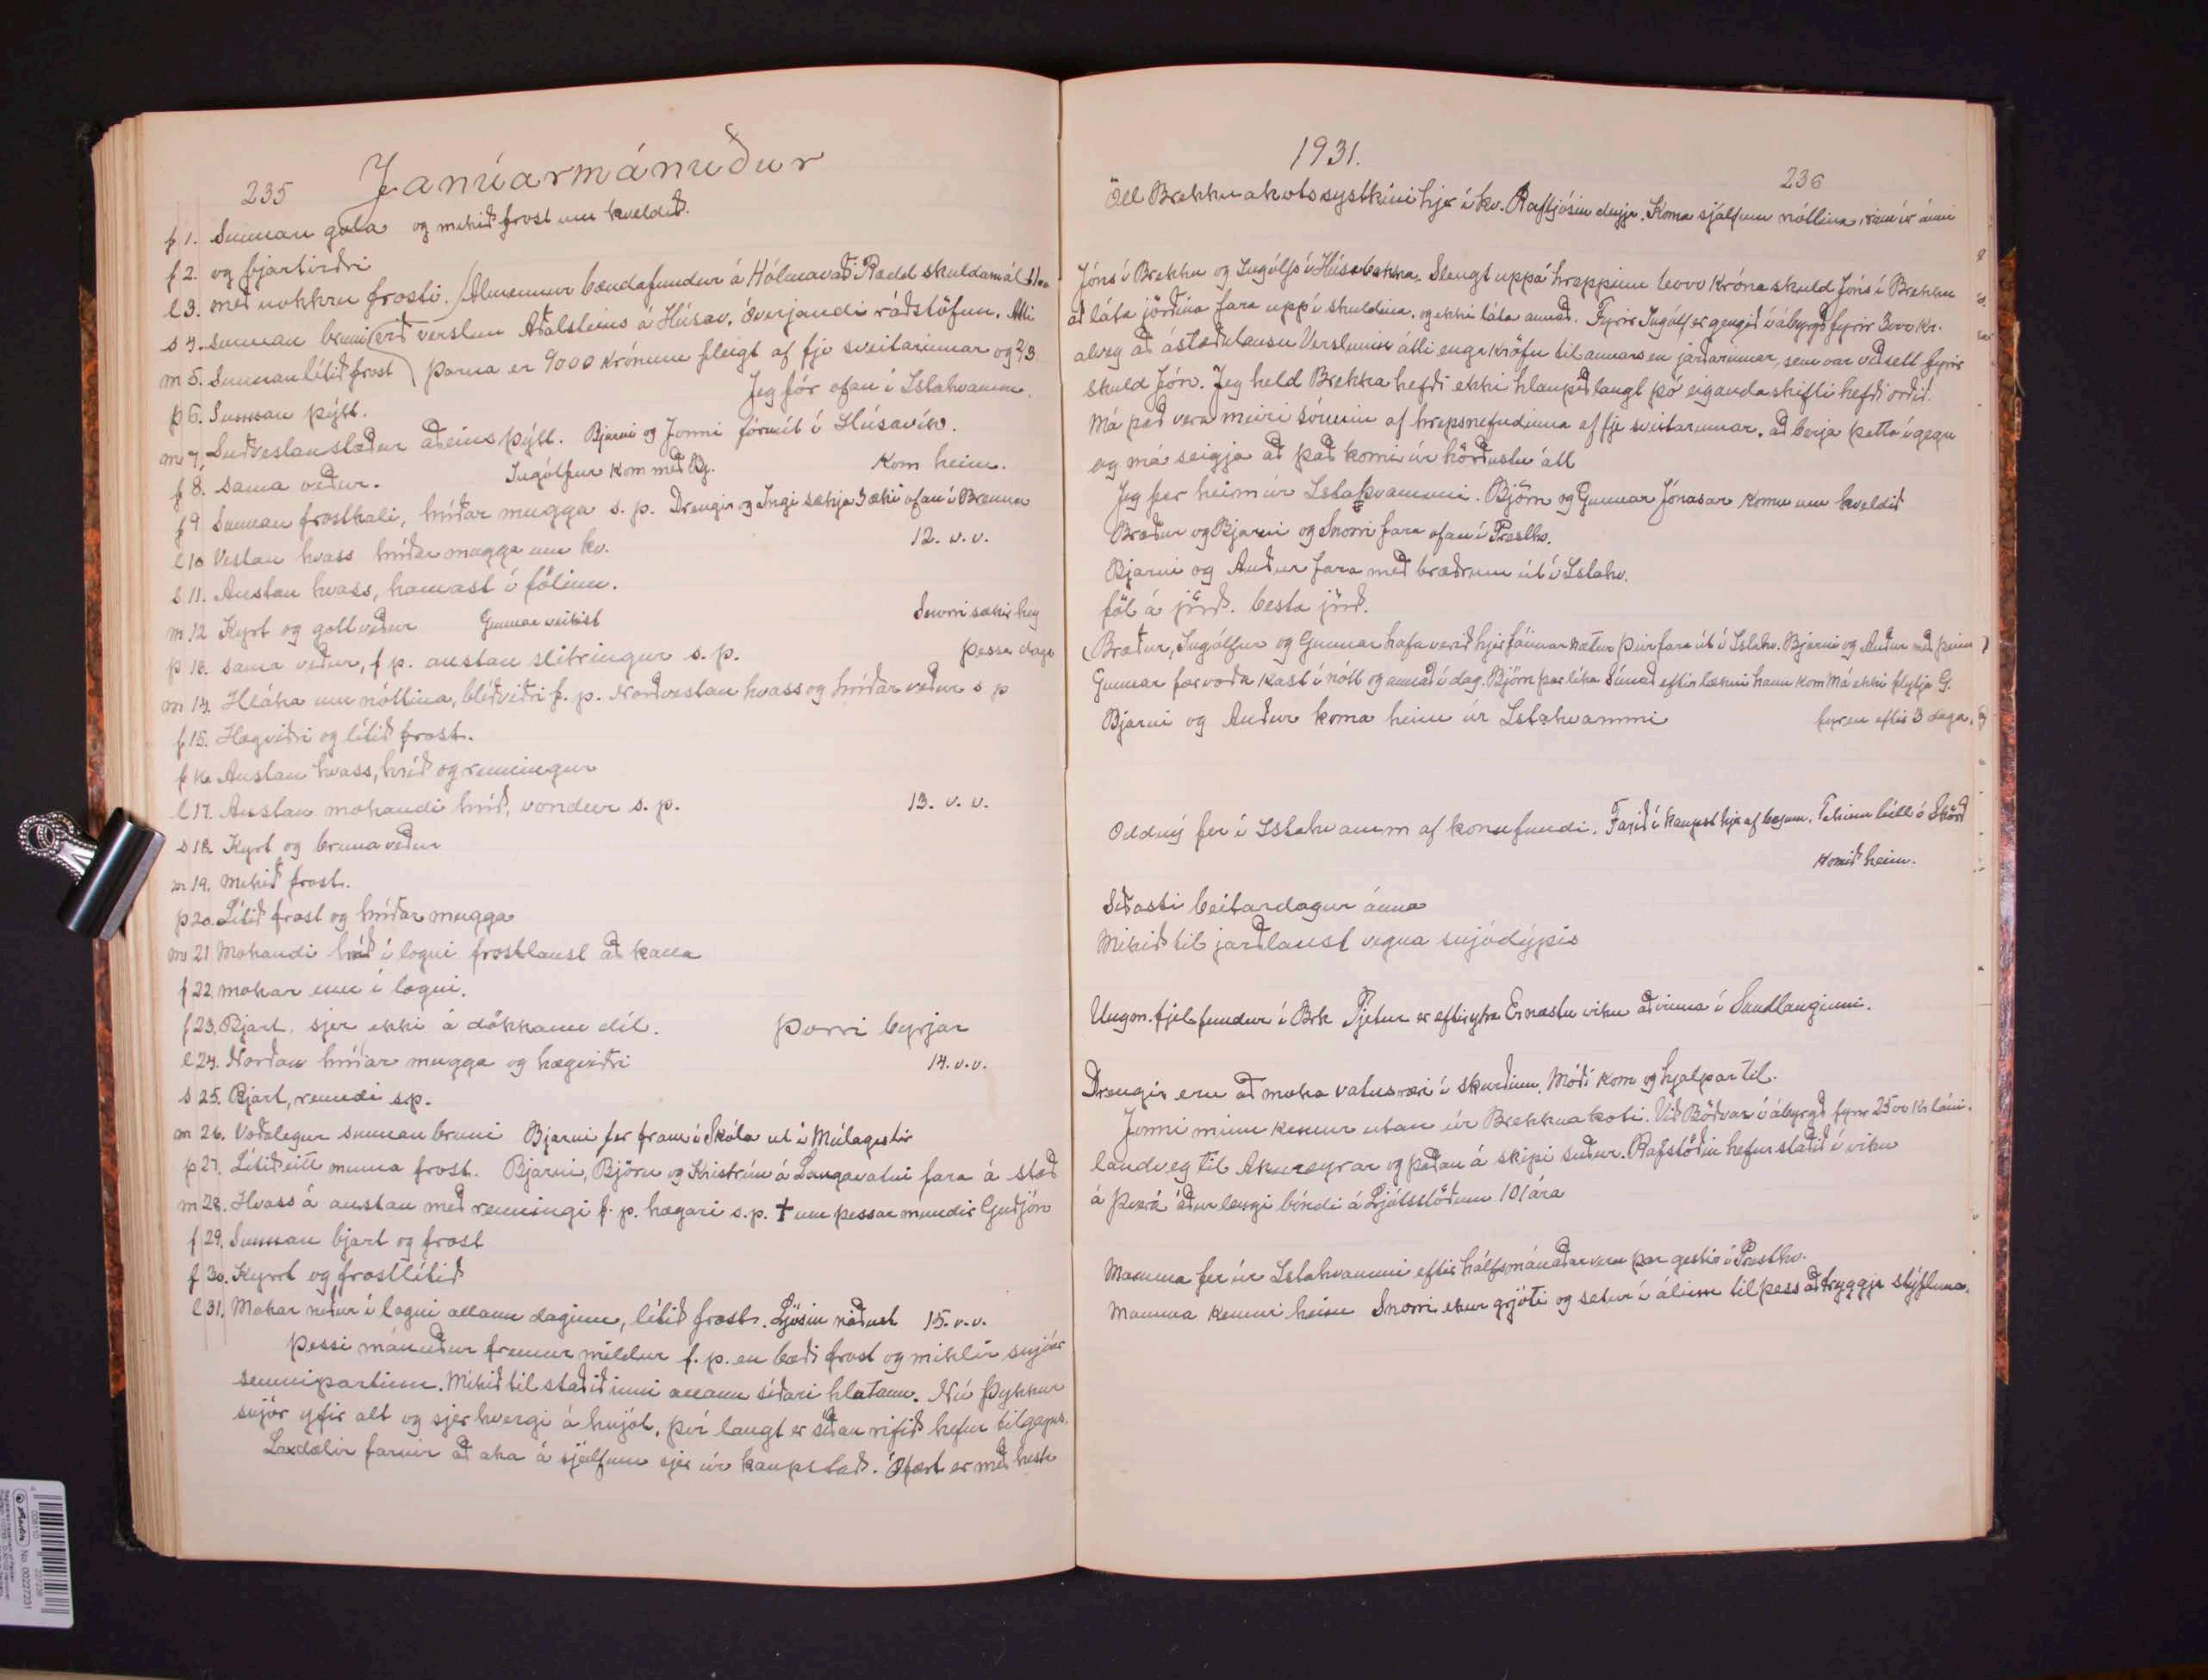 235 Janúarmánuður
f 1. Sunnan gola og mikið frost um kveldið.
f 2. og bjartviðri
l 3. með nokkru frosti. Almennur bændafundur á Hólmavaði Rædd skuldamál
s 4. Sunnan bruni við verslun Aðalsteins á Húsav. Óverjandi ráðstöfun.
m 5. Sunnan lítið frost Þarna er 9000 krónum fleigt af fje sveitarinnar og 2/3
Þ 6. Sunnan þýtt. Jeg fór ofan í Istahvamm.
m 7. Suðvestanstæður aðeins þýtt. Bjarni og Jonni fóru út í Húsavík.
f 8. sama veður. Ingólfur kom með Bj. Kom heim.
f 9 Sunnan frostkali, hríðar mugga s. p. Drengir og Ingi sækja 3 æki ofan í Brenna
l 10 Vestan hvass hríðar mugga um kv. 12. v. v.
s 11. Austan hvass, hamast í fölinu.
m 12 Kyrt og gott veður Gunnar veikist Snorri sækir hey
Þ 13. sama veður, f p. austan slitringur s. p. þessa daga
m 14. Hláka um nóttina, blíðviðri f. p. Norðvestan hvass og hríðar veður s p
f 15. Hægviðri og lítið frost.
f 16 Austan hvass, hríð og renningur
l 17. Austan mokandi hríð, vondur s. p. 13. v. v.
s 18. Kyrt og bruna veður
m 19. mikið frost.
þ 20. Lítið frost og hríðar mugga
m 21 Mokandi hríð í logni frostlaust að kalla
f 22. mokar enn í logni.
f 23. Bjart, sjer ekki á dökkann díl. Þorri byrjar
l 24. Norðan hríðar mugga og hægviðri 14. v. v.
s 25. Bjart, renndi s. p.
m 26. Voðalegur sunnan bruni Bjarni fer fram í Skóla ut í Múlagestir
þ 27. Lítið eitt munna frost. Bjarni, Björn og Kristrún á Langavatni fara á stað
m 28. Hvass á austan með renningi f. p. hægari s. p. † um þessar mundir Guðjón
f 29. Sunnan bjart og frost
f 30. Kyrrt og frostlítið
l 31. Mokar niður í logni allann daginn, lítið frost. Ljósin náðust 15. v. v.
Þessi mánuður fremur mildur f. p. en bæði frost og miklir snjóar
seinnipartinn. Mikið til staðið inni allann síðari hlutann. Nú þykkur
snjór yfir alt og sjer hvergi á hnjót, því langt er síðan rifið hefur til gagns.
Laxdælir farnir að aka á sjálfum sjer úr kaupstað. Ófært er með hesta
1931.
236
Öll Brekknakotssystkini hjer í kv. Rafljósin deyja. Koma sjálfum nóttina, í ánni
Jóns í Brekku og Ingólfs í Húsabakka. Slengt uppá hreppinn 6000 króna skuld Jóns í Brekku
að láta jörðina fara upp í skuldina, og ekki láta annað. Fyrir Ingólf er gengið í ábyrgð fyrir 3000 kr.
alveg að ástæðulausu Verslunin átti enga kröfu til annars en jarðarinnar, sem var veðsett fyrir
skuld Jóns. Jeg held Brekka hefði ekki hlaupið langt þó eigandaskifti hefði orðið.
Má það vera meiri sóunin af hrepsnefndinna af fje sveitarinnar, að berja þetta ígegn
og má seigja að það komi úr hörðustu átt
Jeg fer heim úr Istahvammi. Björn og Gunnar Jónasar komu um kveldið
Bræður og Bjarni og Snorri fara ofan í Presthv.
Bjarni og Auður fara með bræðrum út í Istahv.
föl á jörð. besta jörð.
Bræður, Ingólfur og Gunnar hafa verið hjer fáeinar nætur þeir fara út í Istahv. Bjarni og Auður með þeim
Gunnar fær voða kast í nótt og annað í dag. Björn þar líka Símað eftir lækni hann kom Má ekki flytja G.
Bjarni og Auður koma heim úr Istahvammi fyren eftir 3 daga.
Oddný fer í Istahvamm af konufundi. Farið í kaupst hjer af bæjum. Tekinn bíll á Skörð
Komið heim.
Síðasti beitardagur ánna
Mikið til jarðlaust vegna snjódýpis
Ungm. fjel fundur í Brk Pjetur er eftir ytra Er næstu viku að vinna í Sundlauginni.
Drengir eru að moka vatnsæi í skurðinn. Móði kom og hjálpar til.
Jonni minn kemur utan úr Brekknakoti. Við Böðvar í ábyrgð fyrir 2500 kr láni.
landveg til Akureyrar og þaðan á skipi suður. Rafstöðin hefur staðið í viku
á Þverá áður lengi bóndi á Ljótsstöðum 101 ára
Mamma fer úr Istahvammi eftir hálfsmánaðarveru þar gestir í Presthv.
Mamma kemur heim Snorri ekur grjóti og setur í álinn til þess að tryggja stýfluna.